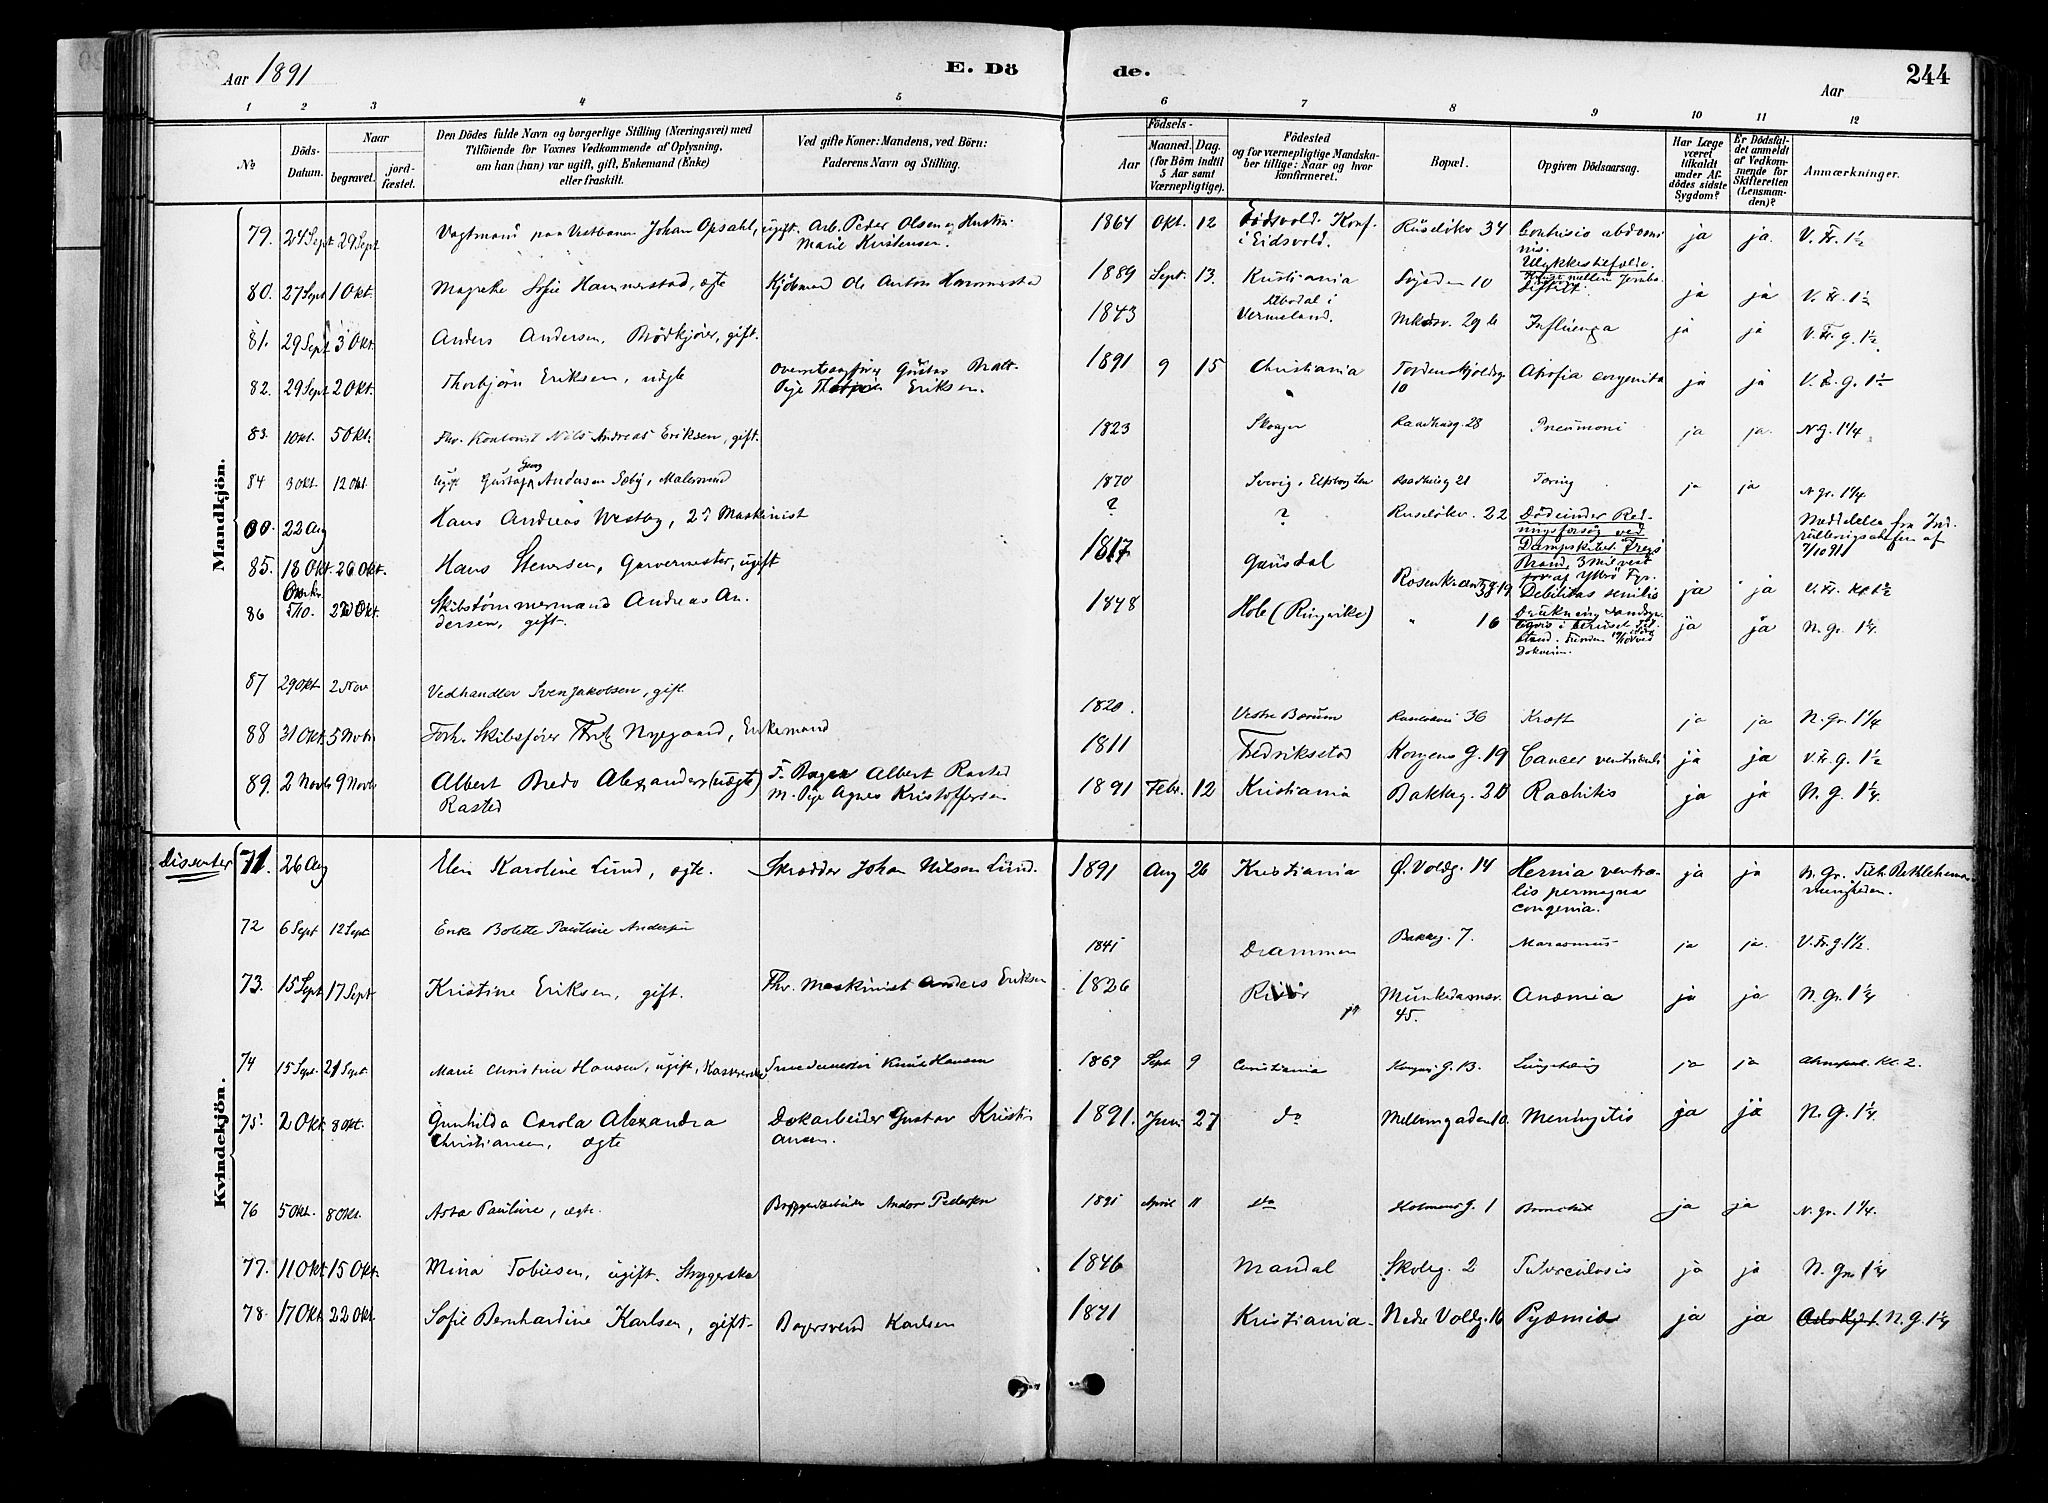 Aar 1891
E. Dö
de.
Aar
244
1 2 3 4 5 6 7 8 9 10 11 12
№
Döds-
Datum.
Naar
begravet.
jord-
fæstet.
Den Dödes fulde Navn og borgerlige Stilling (Næringsvei) med
Tilföiende for Voxnes Vedkommende af Oplysning,
om han (hun) var ugift, gift, Enkemand (Enke)
eller fraskilt.
Ved gifte Koner: Mandens, ved Börn:
Faderens Navn og Stilling.
Födsels-
Aar
Maaned. Dag.
(for Börn indtil
5 Aar samt
Værnepligtige).
Födested
og for værnepligtige Mandska-
ber tillige: Naar og hvor
konfirmeret.
Bopæl.
Opgiven Dödsaarsag.
Har Læge
været
tilkaldt
under Af-
dödes sidste
Sygdom?
Er Dödsfal-
det anmeldt
af Vedkom-
mende for
Skifteretten
(Lensman-
den)?
Anmærkninger.
Mandkjön.
79. 24 Sept 29 Sept Vogtmand paa Vestbanen Johan Opsahl, ugift. Arb. Peder Olsen og Hustru Marie Kristensen. 1864 Okt. 12 Eidsvold. Konf. i Eidsvold. Rüseløkv 34 Contusio abdominis. Ulykkestilfælde. ja ja. V. Fr. 1½
80. 27 Sept 1 Okt. Magreke Sofie Hammerstad, ægte Kjøbmand Ole Anton Hammerstad 1889 Sept. 13. Kristiania 10 ja ja V. Fr. 1½
81. 29 Sept 3 Okt. Anders Andersen, Brødkjører, gift. 1843 Vermeland. Mkdsv. 29 b Influenza ja ja V. Fr. g. 1½
82. 29 Sept 2 Okt. Thorbjørn Eriksen, uægte Gustav Bratt. Pige Eriksen. 1891 9 15 Christiania Tordenskjoldsg 10 Atrofia congenita ja ja V. F. g. 1½
83. 1 Okt. 5 Okt. Fhv. Kontorist Nils Andreas Eriksen, gift. 1823 Skoger Raadhusg. 28 Pneumoni ja ja. N G. 1¼
84 3 Okt. 12 Okt. ugift Gustaf Georg Andersen Sæby, Malersvend 1870 Sverig, Elfsborg Len Raadhusg 21 Tæring ja ja N. Gr. 1¼
00. 22 Aug Hans Andreas Westby, 2d Maskinist ? ? Ruseløkv. 22 Død under Redningsforsøg ved Dampskibet Freys Strand, 3 Mil vest for af Fyr. Meddelelse fra Indrulleringschefen af 7/10 91
85. 18 Okt. 26 Okt. Hans Stenersen, Garvermester, ugift 1817 Gausdal Rosenkrantzg 19 Debilitas senilis ja ja V. Fr. Kl. 1½
86 Skibstømmermand Andreas Andersen, gift. 1848 Hole (Ringerike) " 16 Drukning ja ja N. Gr. 1¼.
87 29 Okt 2 Nov Vedhandler Sven Jakobsen, gift 1820. Vestre Bærum 36 Kræft ja ja N. Gr. 1¼
88 31 Okt. 5 Novbr Forh. Skibsfører Fritz Nyegaard, Enkemand 1811 Fredrikstad Kongens G. 19 Cancer ventriculi ja ja V. Fr. G. 1½
89. 2 Novbr 9 Novbr Albert Bredo Alexander (uægte) Rasted F. Bager Albert Rasted M. Pige Agnes Kristoffersen 1891 Febr. 12 Kristiania Bakkeg. 20 Rachitis ja ja N. G. 1¼.
Kvindekjön.
Dissenter
71. 26 Aug Elen Karoline Lund, ægte. Skrædder Johan Nilsen Lund. 1891 Aug 26 Kristiania Ø. Voldg. 14 Hernia ventralis permagna congenia. ja ja N. Gr. Tilh. Bethlehemsmenigheden.
72 6 Sept 12 Sept Enke Bolette Pauline Andersen 1841 Drammen Bakkeg. 7. Marasmus ja ja. V. Fr. g. 1½.
73. 15 Sept 17 Sept. Kristine Eriksen, gift. Fhv. Maskinist Anders Eriksen 1826 Risør Munkedamsv. 45. Anæmia ja ja N. Gr. 1¼
74 15 Sept. 21 Sept. Marie Christine Hansen, ugift, Kassererske Smedemester Knut Hansen 1869 Sept 9 Christiania Kongens G. 13. Lungetæring ja ja Kl. 2.
75 2 Okt. 8 Okt. Gunhilda Carola Alexandra Christiansen, ægte Dokarbeider Gustav Kristiansen. 1891. Juni 27 do Mellemgaden 10. Meningitis ja ja N. G. 1¼.
76 5 Okt. 8 Okt. Asta Pauline, ægte. Bryggearbeider Andor Pedersen 1891 April 11 do Holmens G. 1 Bronchit ja ja N. Gr. 1¼.
77. 11 Okt. 15 Okt. Mina Tobiesen, ugift. Strygerske 1846 Mandal Skoleg. 2 Tuberculosis ja ja N. Gr. 1¼
78. 17 Okt 22 Okt. Sofie Bernhardine Karlsen, gift- Bagersvend Karlsen 1871 Kristiania. Nedre Voldg. 16 Pyæmia ja ja N. G. 1¼